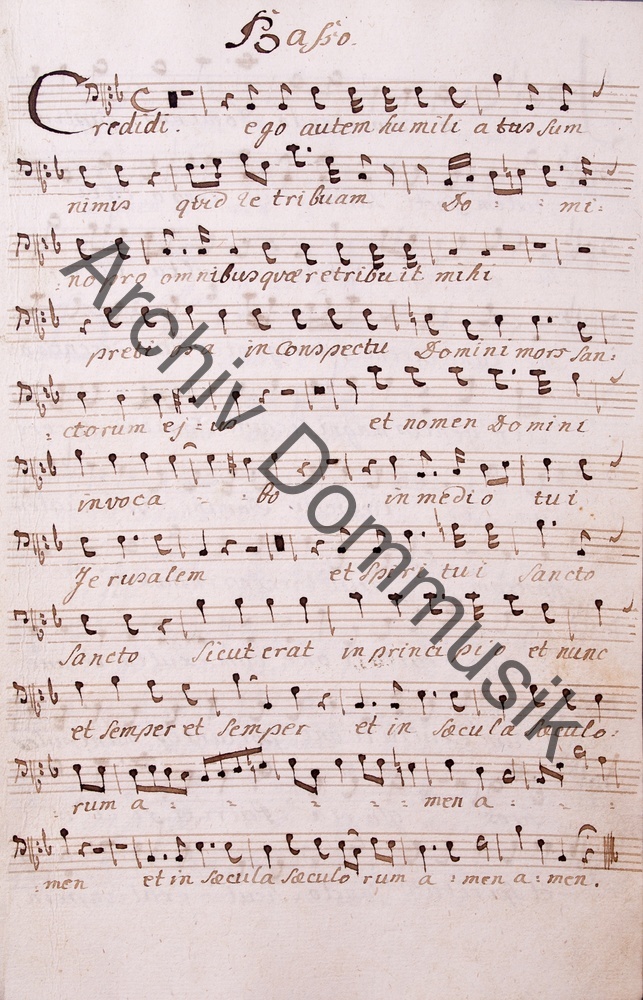 Basso.
Credidi. ego autem humili atus sum
nimis quid retribuam Do - - mi-
-no pro omnibus quæ retribuit mihi
preti osa in Conspectu Domini mors San-
-ctorum ej-us et nomen Domini
invoca - - bo in medio tui
Jerusalem et Spiri tui Sancto
Sancto Sicut erat in principio et nunc
et Semper et Semper et in Sæcula Sæculo-
rum a - - - - - men a - -
-men et in Sæcula Sæculo rum a-men a-men.
Archiv Dommusik